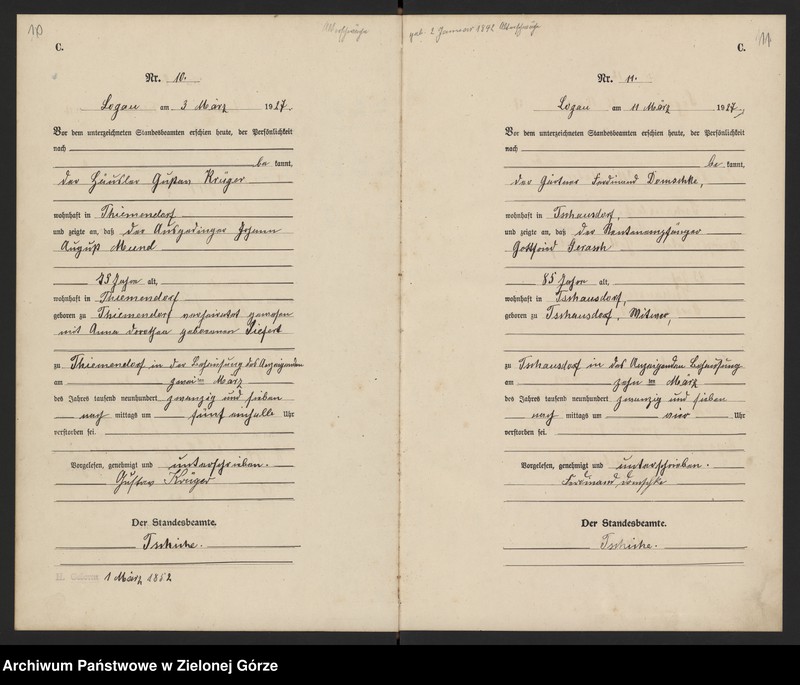 10
Altersschwäche
C.
Nr. 10.
Logau am 3 März 1927.
Vor dem unterzeichneten Standesbeamten erschien heute, der Persönlichkeit
nach
be kannt,
der Häusler Gustav Krüger
wohnhaft in Thiemendorf
und zeigte an, daß der Ausgedinger Johann
August Mund
Jahre alt,
wohnhaft in Thiemendorf
geboren zu Thiemendorf verheiratet gewesen
mit Anna Dorothea geborenen Siefert
zu Thiemendorf in der Behausung des Anzeigenden
am zweiten März
des Jahres tausend neunhundert zwanzig und sieben
nach mittags um fünf einhalb Uhr
verstorben sei.
Vorgelesen, genehmigt und unterschrieben.
Gustav Krüger
Der Standesbeamte.
Tschirke.
1 März 1852
geb. 2 Januar 1842 Altersschwäche
11
C.
Nr. 11.
Logau am 11 März 1927,
Vor dem unterzeichneten Standesbeamten erschien heute, der Persönlichkeit
nach
be kannt,
der Gärtner Ferdinand Domschke,
wohnhaft in Tschausdorf,
und zeigte an, daß der Rentenempfänger
Gottfried Jerasch
85 Jahre alt,
wohnhaft in Tschausdorf,
geboren zu Tschausdorf, Witwer,
zu Tschausdorf in des Anzeigenden Behausung
am zehn ten März
des Jahres tausend neunhundert zwanzig und sieben
nach mittags um vier Uhr
verstorben sei.
Vorgelesen, genehmigt und unterschrieben.
Ferdinand Domschke
Der Standesbeamte.
Tschirke.
Archiwum Państwowe w Zielonej Górze